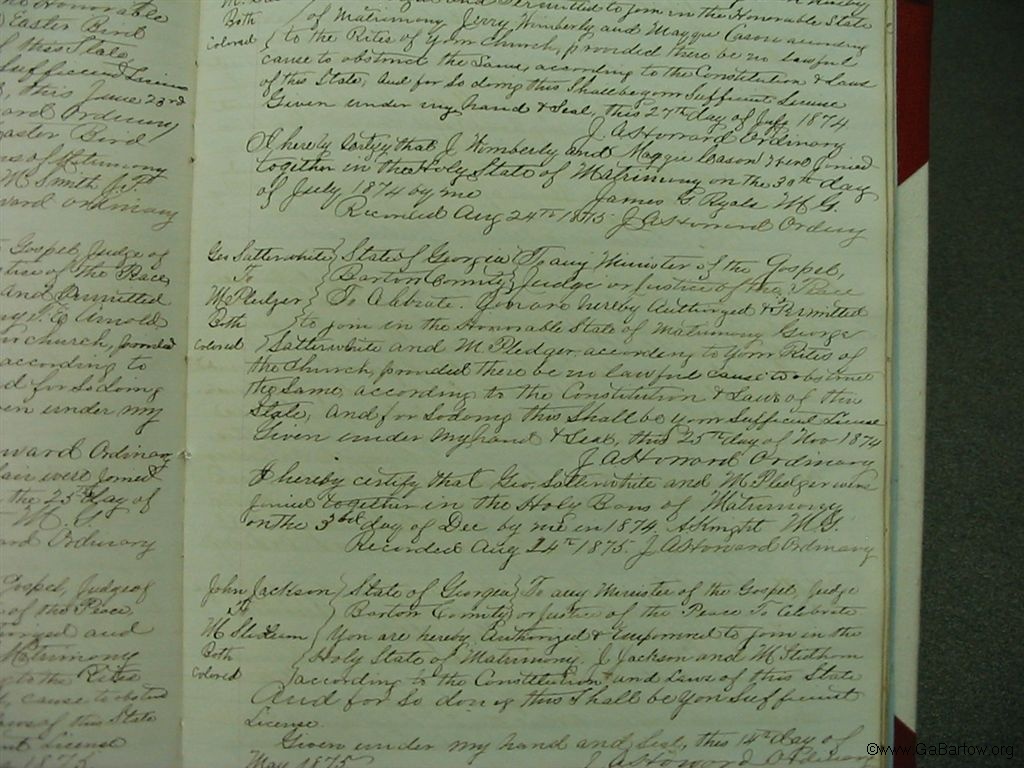 Honorable
Easter Bird
of this State
Sufficient License
this June 23rd
Ordinary
Easter Bird
of Matrimony
McSmith J.P.
Howard Ordinary
Gospel, Judge of
of the Peace
and Permitted
Arnold
church, provided
according to
d for So doing
under my
Howard Ordinary
were Joined
the 25th day of
M. G.
Ordinary
Gospel, Judge of
of the Peace
and
Matrimony
to the Rites
cause to
laws of this State
License
1875
and Permitted to join in the Honorable State
Both of Matrimony Jerry Wimberly and Maggie Cason according
Colored to the Rites of your Church, provided there be no lawful
cause to obstruct the Same, according to the Constitution & Laws
of this State, and for So doing this Shall be your Sufficient License
Given under my hand & Seal, this 27th day of July 1874
J A Howard Ordinary
I hereby certify that J. Wimberly and Maggie Cason were Joined
together in the Holy State of Matrimony on the 30th day
of July 1874 by me James G Ryals M.G.
Recorded Aug 24th 1875 J A Howard Ordiny
Geo Satterwhite State of Georgia To any Minister of the Gospel,
To Bartow County Judge or Justice of the Peace
M. Pledger To Clbrate. You are hereby Authorized & Permitted
Both to join in the Honorable State of Matrimony George
Colored Satterwhite and M. Pledger, according to your Rites of
the Church, provided there be no lawful cause to obstruct
the Same, according to the Constitution & Laws of this
State, and for So doing this Shall be your Sufficient License
Given under my hand & Seal, this 25th day of Nov 1874
J A Howard Ordinary
I hereby certify that Geo. Satterwhite and M. Pledger were
joined together in the Holy Bans of Matrimony
on the 3rd day of Dec by me in 1874 A Knight M.G.
Recorded Aug 24th 1875. J A Howard Ordinary
John Jackson State of Georgia To any Minister of the Gospel, Judge
To Bartow County or Justice of the Peace To Celebrate
M You are hereby Authorized & Empowered to join in the
Both Holy State of Matrimony, J. Jackson and M
Colored according to the Constitution and laws of this State
And for So doing this Shall be you Sufficient
License.
Given under my hand and Seal, this 14th day of
May 1875 J A Howard Ordinary
©www.GaBartow.org